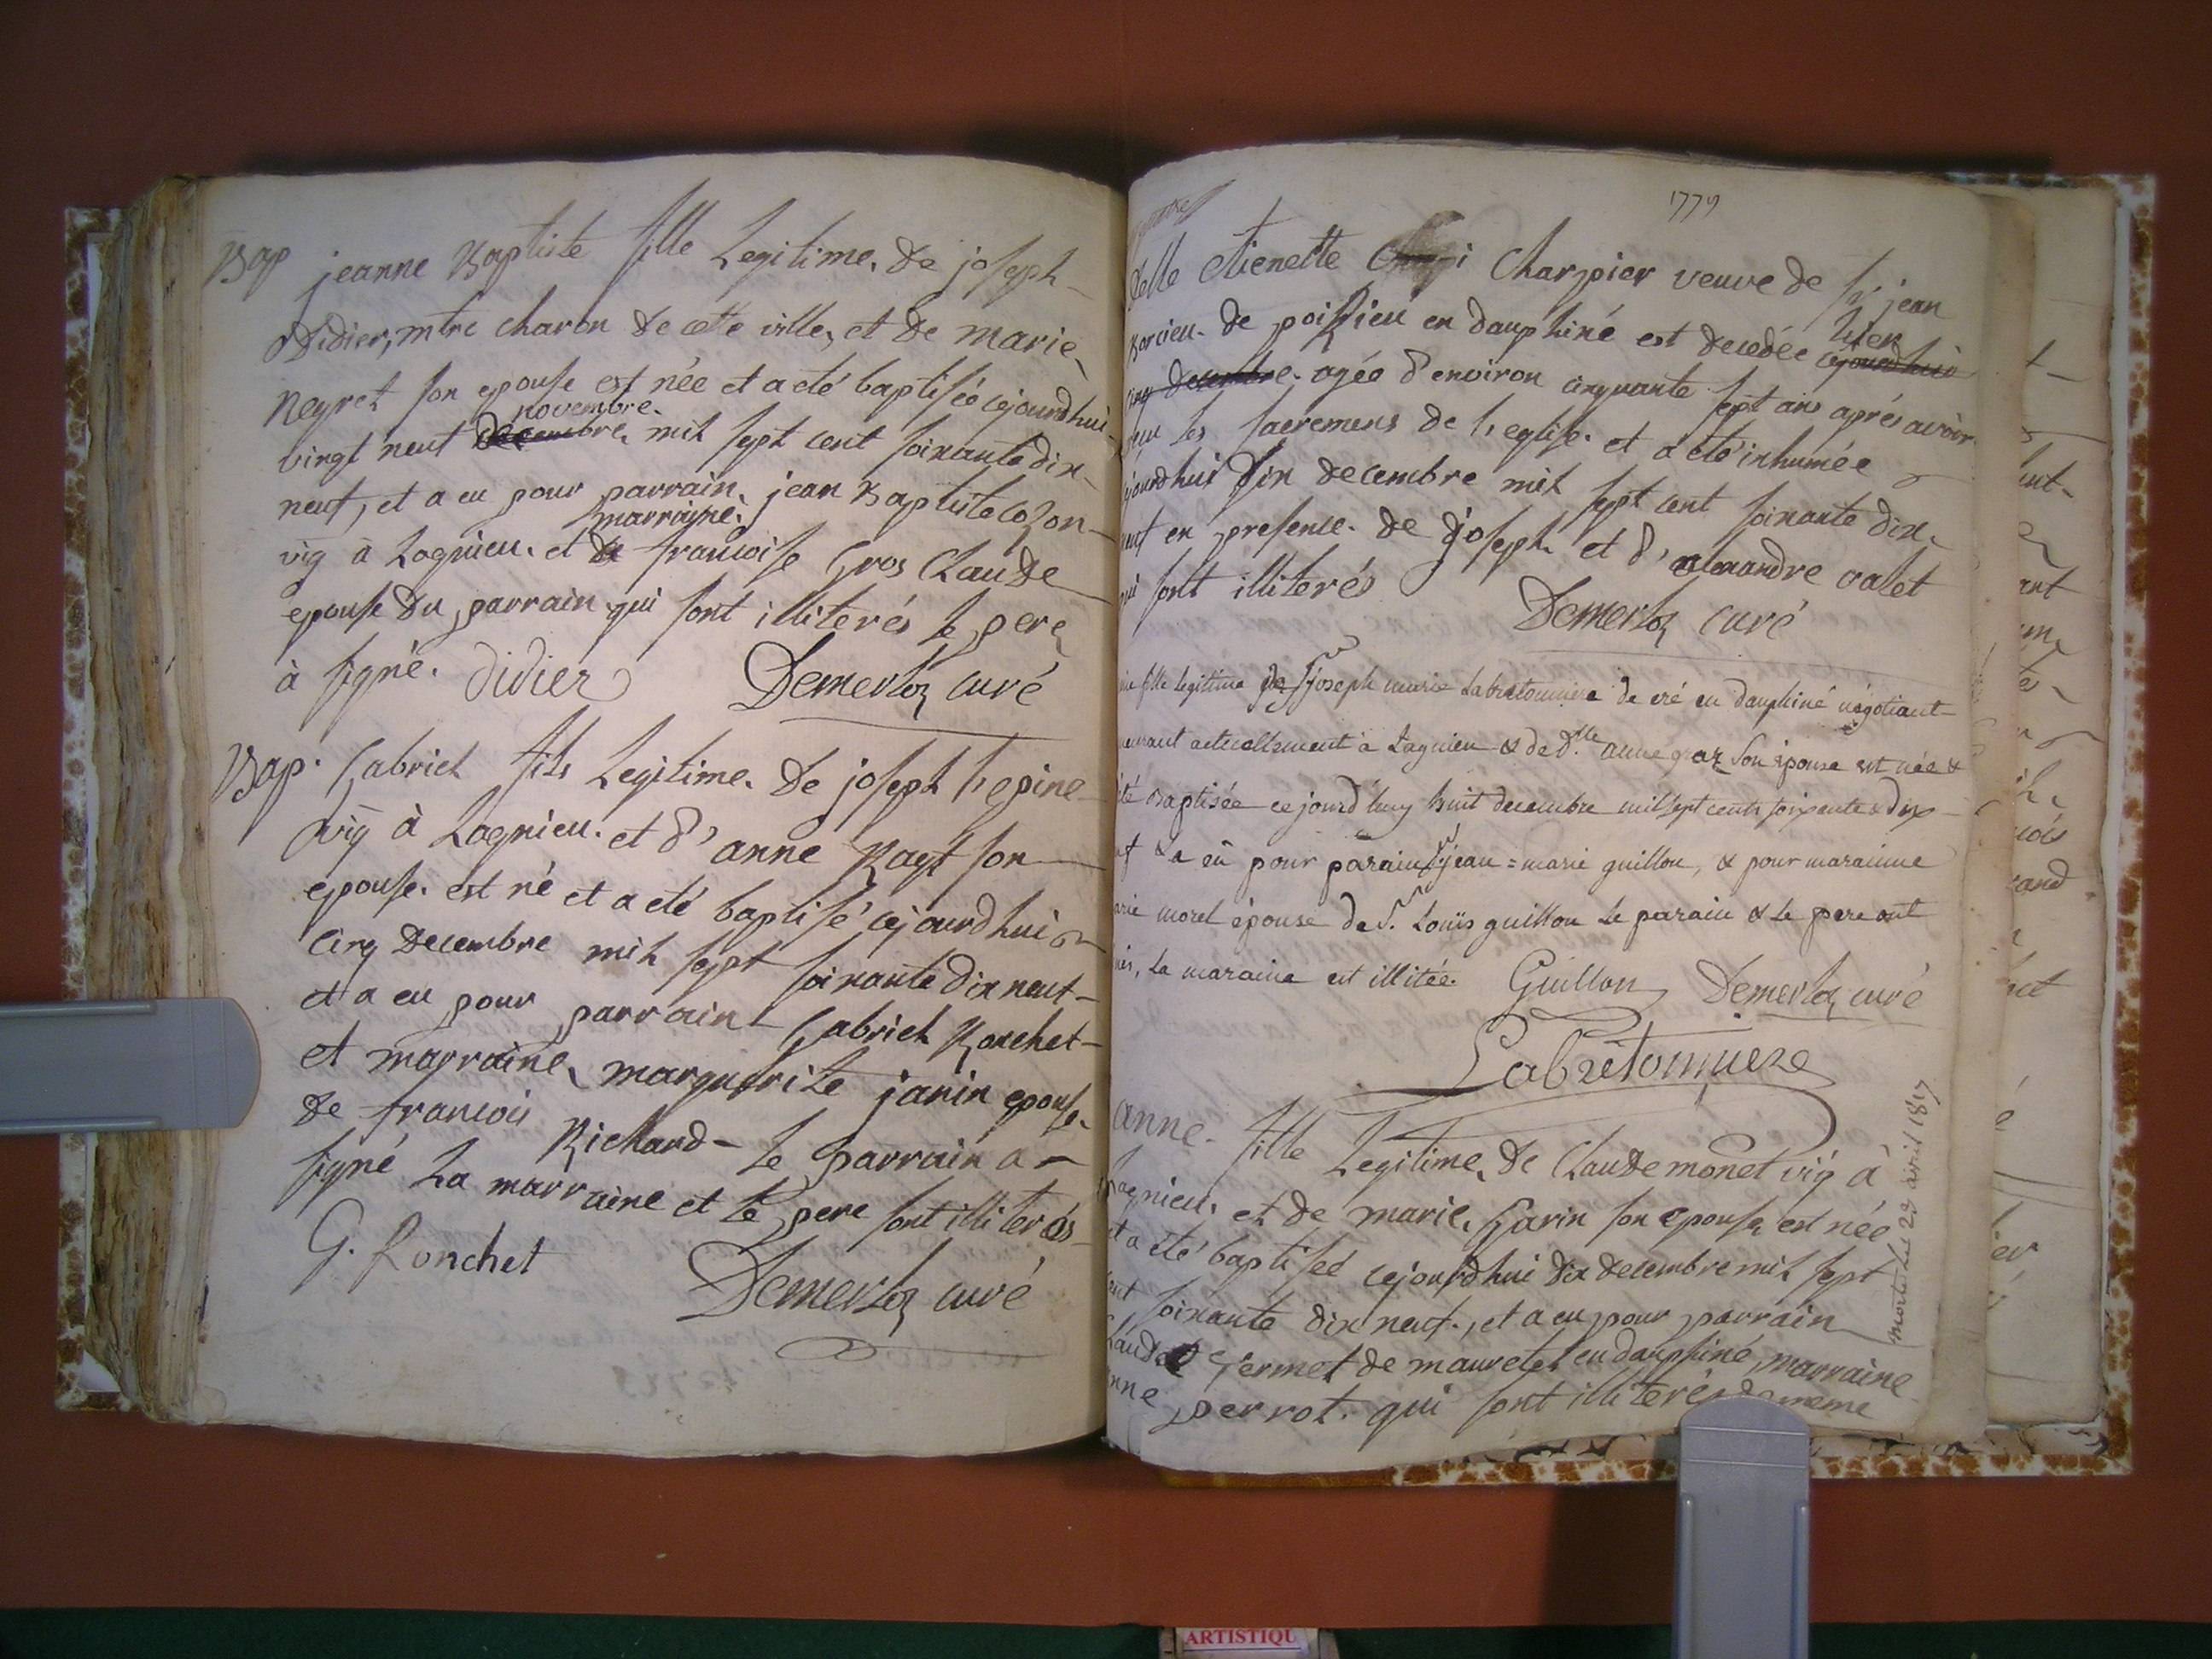 Bap jeanne Baptiste fille Legitime de joseph
Didier, mtre charon de cette ville, et de marie
Neyret son epouse est née et a eté baptisée cejourdhui
novembre
vingt neuf decembre mil sept cent soixante dix
neuf, et a eu pour parrain jean Baptiste
marraine
vig à Lagnieu. et de francoise Gros Claude
epouse du parrain qui sont illiterés le pere
à signé. Didier Demerloz curé
Bap. Gabriel fils Legitime de joseph Lepine
vig à Lagnieu. et d'anne Ragt son
epouse. est né et a eté baptisé cejourdhui
cinq decembre mil sept soixante dix neuf
et a eu pour parrain Gabriel Ronchet
et marraine marguerite janin epouse
de francois Richard Le parrain a
signé La marraine et Le pere sont illiterés
G. Ronchet
Demerloz curé
1779
delle etienette Charpier veuve de Sr jean
hier
de poissieu en dauphiné est decedée cejourdhui
cinq decembre. agée d'environ cinquante sept ans aprés avoir
les sacremens de l'eglise. et a eté inhumée
cejourdhui six decembre mil sept cent soixante dix
neuf en presence de joseph et d'alexandre valet
qui sont illiterés Demerloz curé
fille legitime de Sr joseph marie Labretonniere de cré en dauphiné négotiant
actuellement à Lagnieu & de dlle anne graz son épouse est née &
été baptisée ce jourd'huy huit decembre mil sept cents soixante & dix
& a eû pour parain Sr jean=marie guillon, & pour maraine
marie morel épouse de Sr Loüis guillon Le parain & Le pere ont
La maraine est illitée. Guillon Demerloz curé
Labretonniere
anne fille Legitime de Claude monet vig à
Lagnieu. et de marie Garin son epouse est née
et a été baptisée cejourdhui dix decembre mil sept
cent soixante dix neuf, et a eu pour parrain
Claude fermet de mauretel en dauphiné marraine
anne perrot. qui sont illiterés
morte Le 23 avril 1847
ARTISTIQU